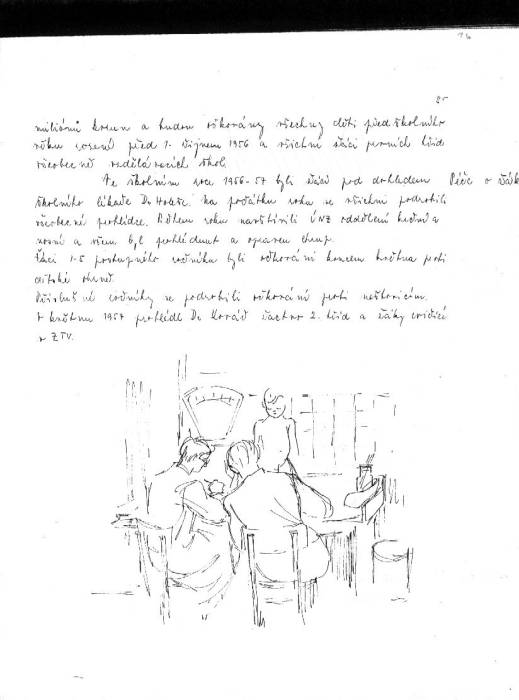 25
milionů korun a budou očkovány všechny děti předškolního
věku před 1. říjnem 1956 a všichni žáci prvních tříd
všeobecně vzdělávacích škol.
Ve školním roce 1956-57 byli žáci pod dohledem Péče o žák
školního lékaře Dr Na počátku roku se všichni podrobili
všeobecné prohlídce. Během roku navštívili ÚNZ oddělení krční a
nosní a všem byl prohlédnut a opraven chrup.
Žáci 1-5 postupného ročníku byli očkováni koncem května proti
dětské obrně.
Příslušné ročníky se podrobili očkování proti neštovicím.
V květnu 1957 prohlédl Dr Kováč 2. tříd a žáky cvičící
v ZTV.